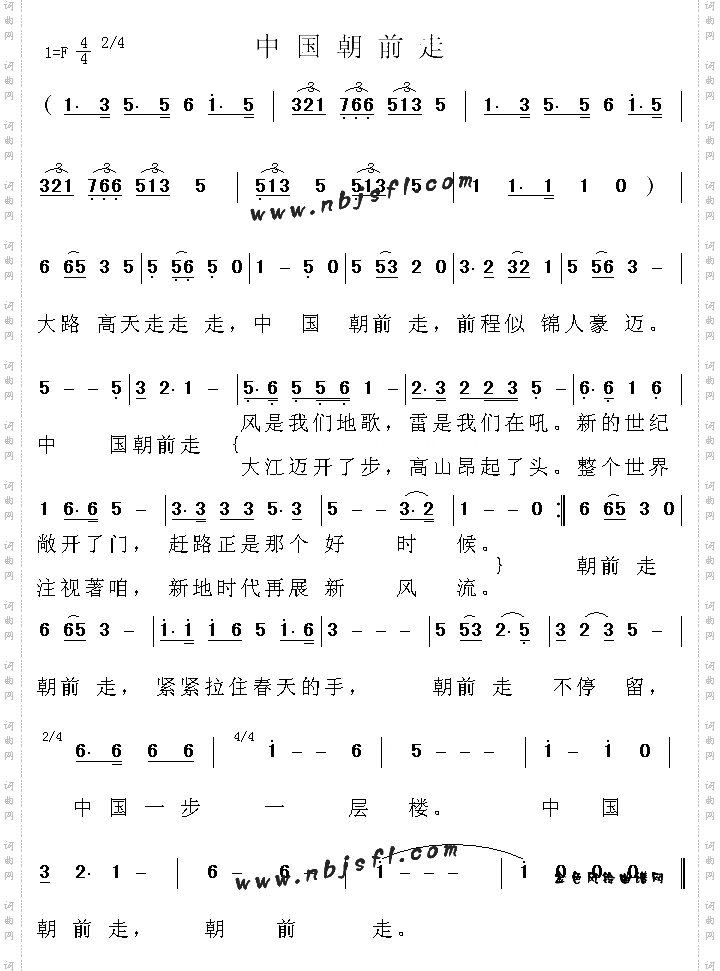 中国朝前走
1=F 4/4 2/4
( 1· 3 5· 5 6 i· 5 | 321 766 513 5 | 1· 3 5· 5 6 i·5 |
321 766 513 5 | 513 5 513 5 | 1 1· 1 1 0 )
www.nbjsfl.com
6 65 3 5 | 5 56 5 0 | 1 - 5 0 | 5 53 2 0 | 3· 2 32 1 | 5 56 3 - |
大路 高天走走 走，中 国 朝前 走，前程似 锦人豪 迈。
5 - - 5 | 3 2· 1 - | 5· 6 5 5 6 1 - | 2· 3 2 2 3 5 - | 6· 6 1 6 |
风是我们地歌，雷是我们在吼。新的世纪
中 国朝前走 {
大江迈开了步，高山昂起了头。整个世界
1 6· 6 5 - | 3· 3 3 3 5· 3 | 5 - - 3· 2 | 1 - - 0 :‖ 6 65 3 0 |
敞开了门， 赶路正是那个 好 时 候。
} 朝前 走
注视著咱， 新地时代再展 新 风 流。
6 65 3 - | i· i i 6 5 i· 6 | 3 - - - | 5 53 2· 5 | 3 2 3 - |
朝前 走， 紧紧拉住春天的手， 朝前 走 不停 留，
2/4 6· 6 6 6 | 4/4 i - - 6 | 5 - - - | i - i 0 |
中 国 一 步 一 层 楼。 中 国
3 2· 1 - | 6 - 6 - | i - - - | i 0 0 0 ‖
www.nbjsfl.com
朝 前 走， 朝 前 走。
词曲网